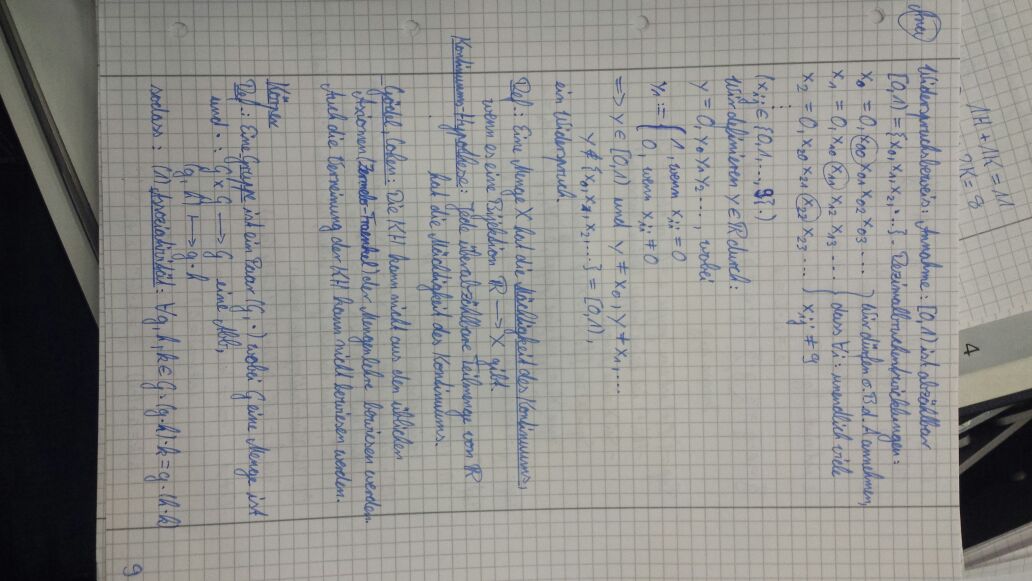 1H + 1K = 11
2K = 8
4
Widerspruchsbeweis: Annahme: [0,1) ist abzählbar
[0,1) = {x₀, x₁, x₂, ...}. Dezimalbruchentwicklungen:
x₀ = 0, x₀₀ x₀₁ x₀₂ x₀₃ .... } Wir dürfen o.B.d.A annehmen,
x₁ = 0, x₁₀ x₁₁ x₁₂ x₁₃ .... } dass ∀i: unendlich viele
x₂ = 0, x₂₀ x₂₁ x₂₂ x₂₃ ... } xᵢⱼ ≠ 9
(xᵢⱼ ∈ {0,1,...,9}.)
Wir definieren y ∈ ℝ durch:
y = 0, y₀ y₁ y₂ ...., wobei
yᵢ := { 1, wenn xᵢᵢ = 0
0, wenn xᵢᵢ ≠ 0
=> y ∈ [0,1) und y ≠ x₀, y ≠ x₁, ...
y ∉ {x₀, x₁, x₂, ...} = [0,1),
ein Widerspruch.
Def.: Eine Menge X hat die Mächtigkeit des Kontinuums,
wenn es eine Bijektion ℝ → X gibt.
Kontinuums-Hypothese: Jede überabzählbare Teilmenge von ℝ
hat die Mächtigkeit des Kontinuums.
- Gödel, Cohen: Die KH kann nicht aus den üblichen
Axiomen (Zermelo-Fraenkel) der Mengenlehre bewiesen werden.
Auch die Verneinung der KH kann nicht bewiesen werden.
Körper
Def.: Eine Gruppe ist ein Paar (G, ·) wobei G eine Menge ist
und · : G x G → G eine Abb.,
(g, h) ↦ g · h
sodass: (1) Assoziativität: ∀g, h, k ∈ G: (g · h) · k = g · (h · k)
9